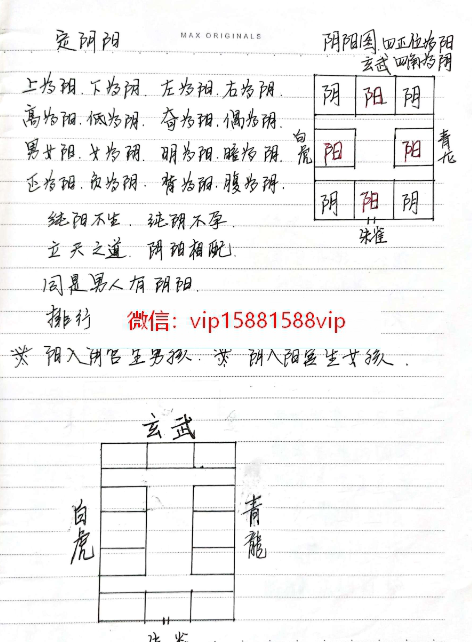 MAX ORIGINALS
定阴阳
阴阳图.四正位为阳
玄武 四角为阴
上为阳.下为阴.左为阳.右为阴.
高为阳.低为阴.奇为阳.偶为阴.
男女阳.女为阴.明为阳.暗为阴.
正为阳.反为阴.背为阳.腹为阴.
纯阳不生.纯阴不孕.
立天之道.阴阳相配.
同是男人有阴阳.
排行
阴 阳 阴
白虎
阳 阳
青龙
阴 阳 阴
朱雀
微信：vip15881588vip
※ 阳入阴宫生男孩.※ 阴入阳宫生女孩.
玄武
白虎
青龍